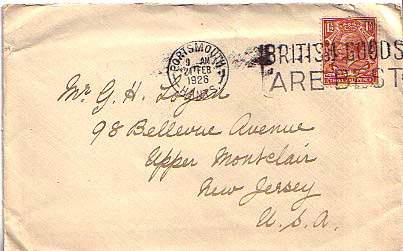 PORTSMOUTH
9 AM
24 FEB
1926
HANTS
BRITISH GOODS
ARE BEST
Mr G. H. Logan
98 Bellevue Avenue
Upper Montclair
New Jersey
U.S.A.